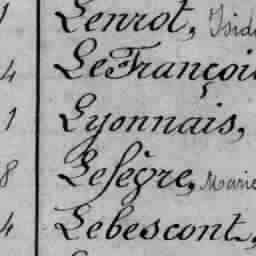 1 Lenrot, Isid
4 LeFrançoi
1 Lyonnais,
8 Lesègre, Marie
4 Lebescont,